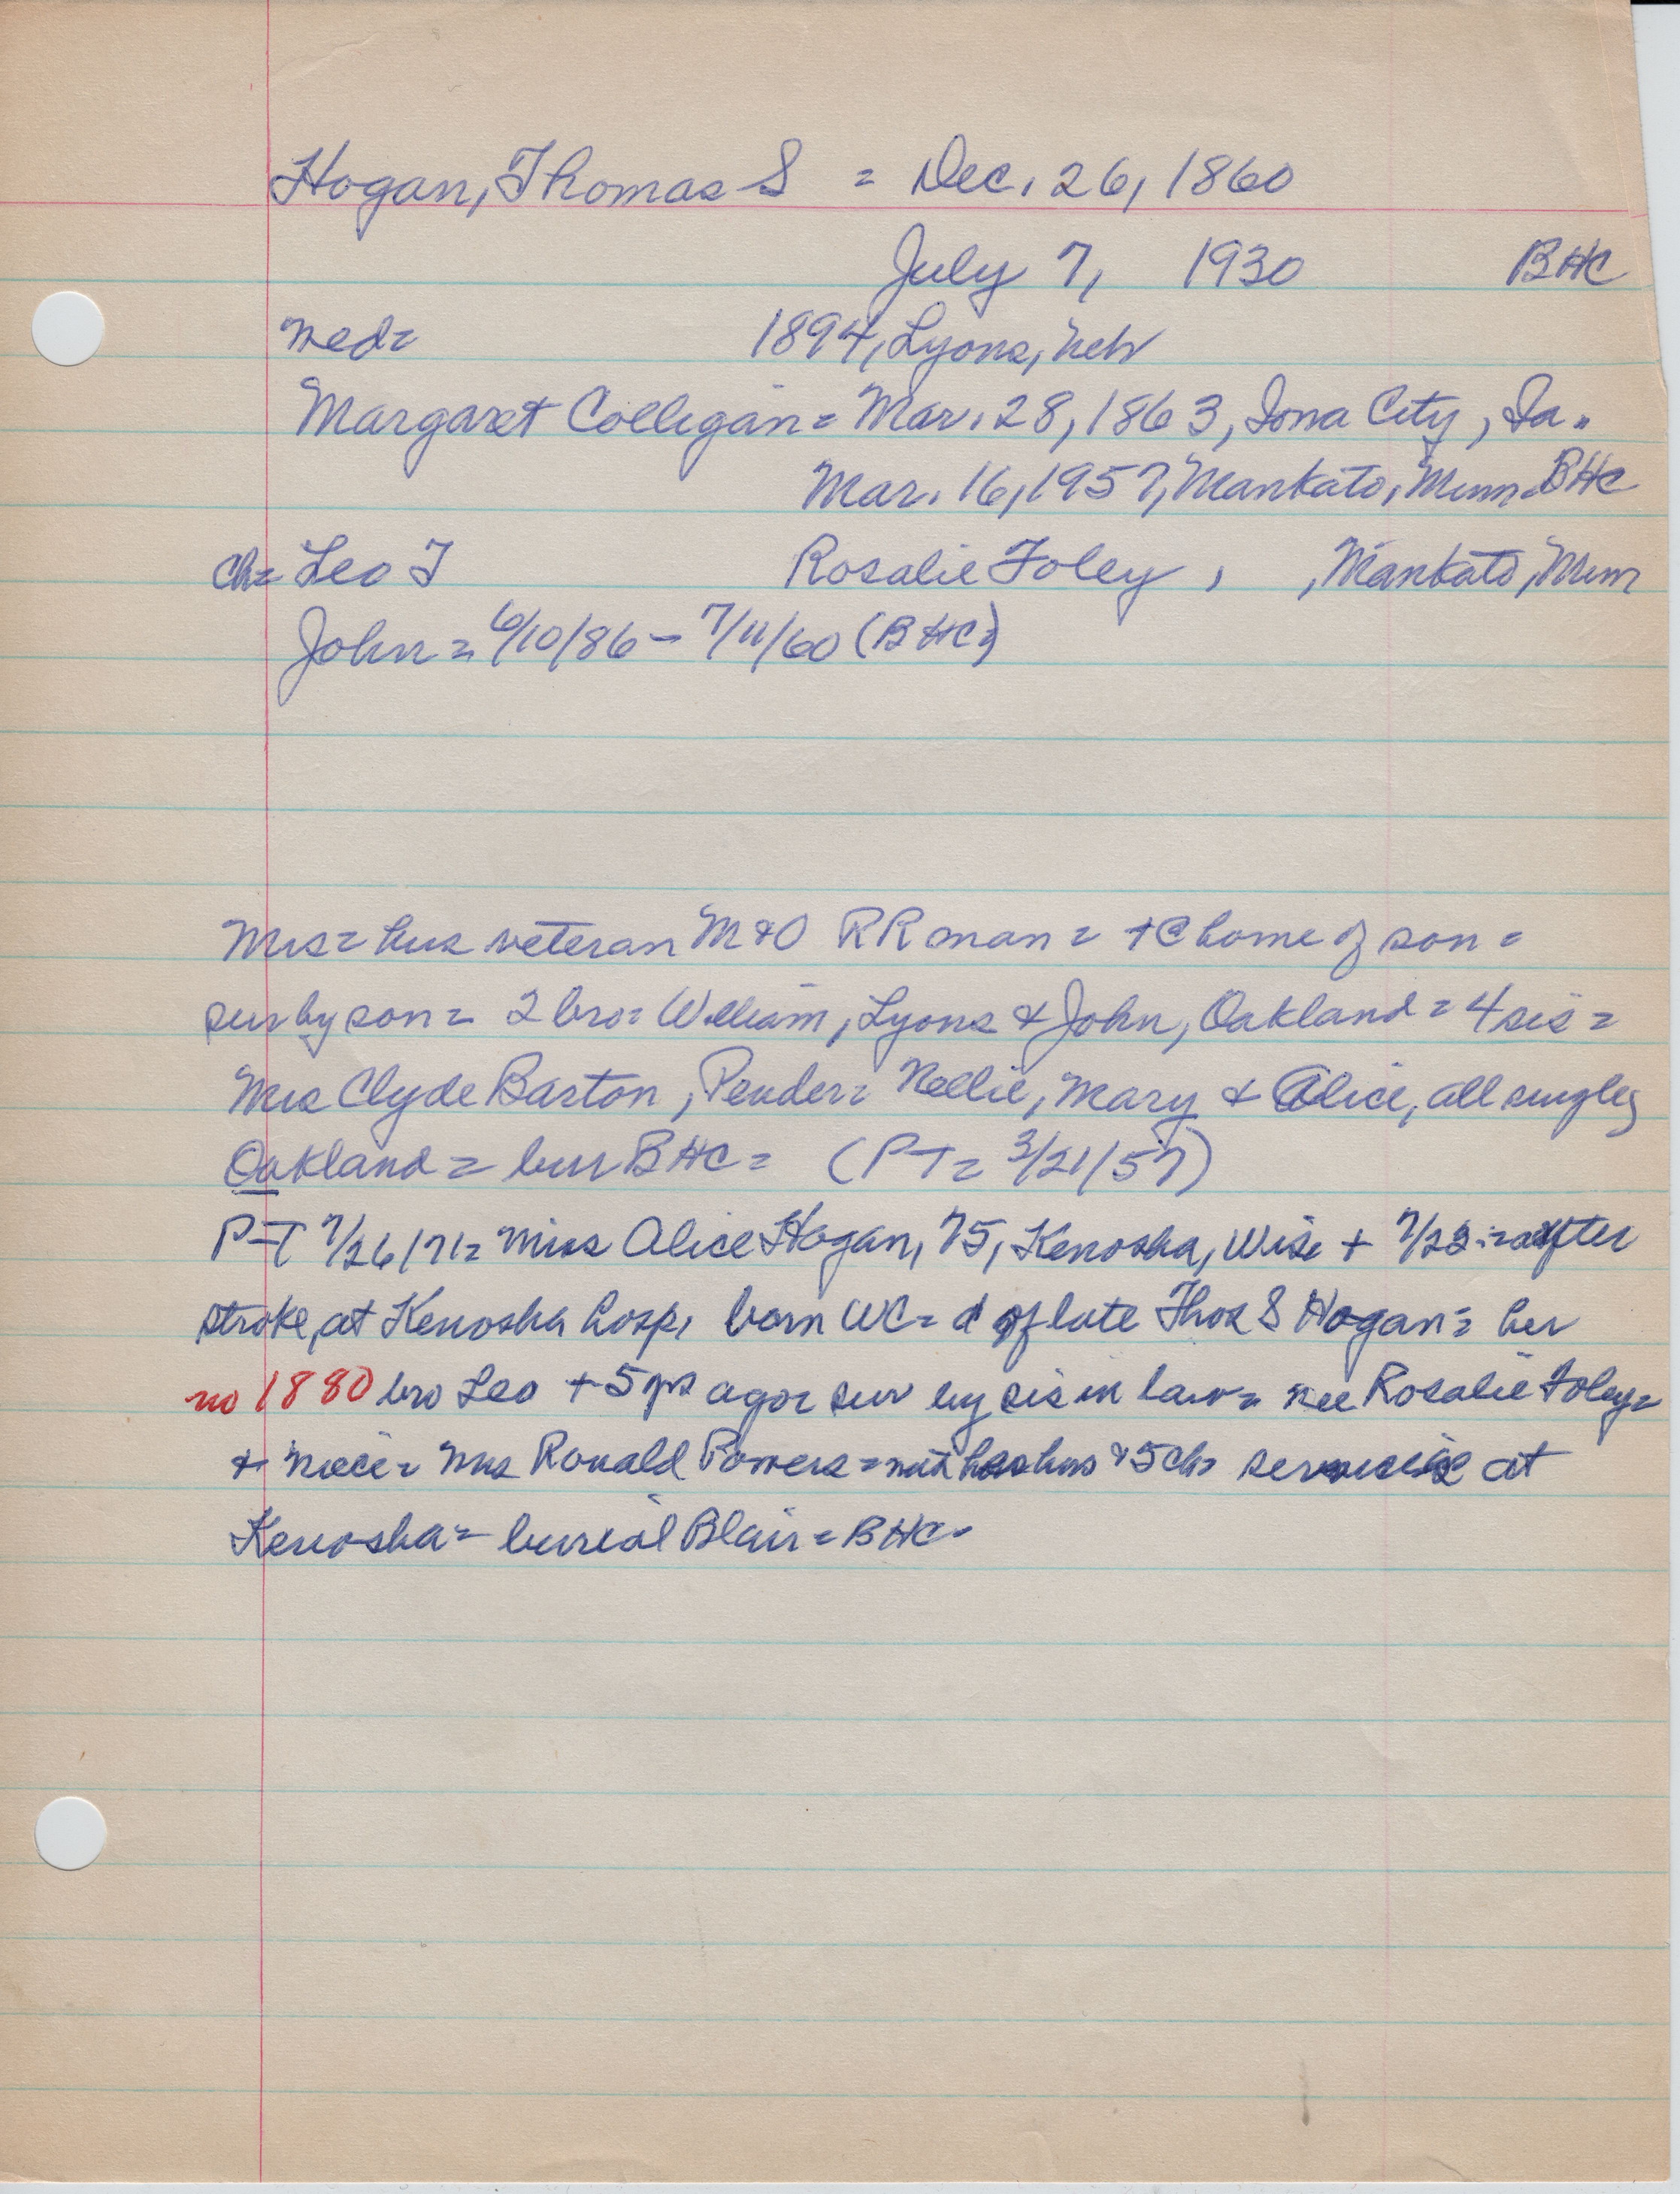 Hogan, Thomas S = Dec. 26, 1860
July 7, 1930 BHC
med= 1894, Lyons, Neb
Margaret Colligan = Mar. 28, 1863, Iowa City, Ia.
Mar. 16, 1957, Mankato, Minn. BHC
Ch= Leo T Rosalie Foley, , Mankato, Minn
John = 6/10/86 - 7/11/60 (BHC)
Mrs = hus veteran M&O RR man = + @ home of son =
sur by son = 2 bro= William, Lyons & John, Oakland = 4 sis =
Mrs Clyde Barton, Pender= Nellie, Mary & Alice, all single,
Oakland = bur BHC = (PT= 3/21/57)
P-T 7/26/71= Miss Alice Hogan, 75, Kenosha, Wisc + 7/23 = after
stroke, at Kenosha hosp, born WC = d of late Thos S Hogan = her
no 1880 bro Leo + 5 yrs ago= sur by sis in law = nee Rosalie Foley=
+ niece = Mrs Ronald Powers = hus & 5 ch= at
Kenosha = burial Blair = BHC